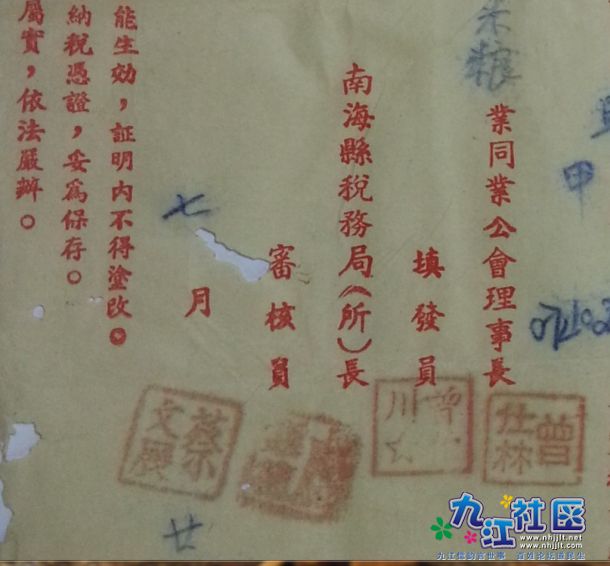 甲
米粮業同業公會理事長
曾仕林
填發員
南海縣稅務局(所)長
審核員
七月廿
能生効，証明內不得塗改。
納稅憑證，妥爲保存。
屬實，依法嚴辦。
九江社区
www.nhjjlt.net
www.nhjjlt.com